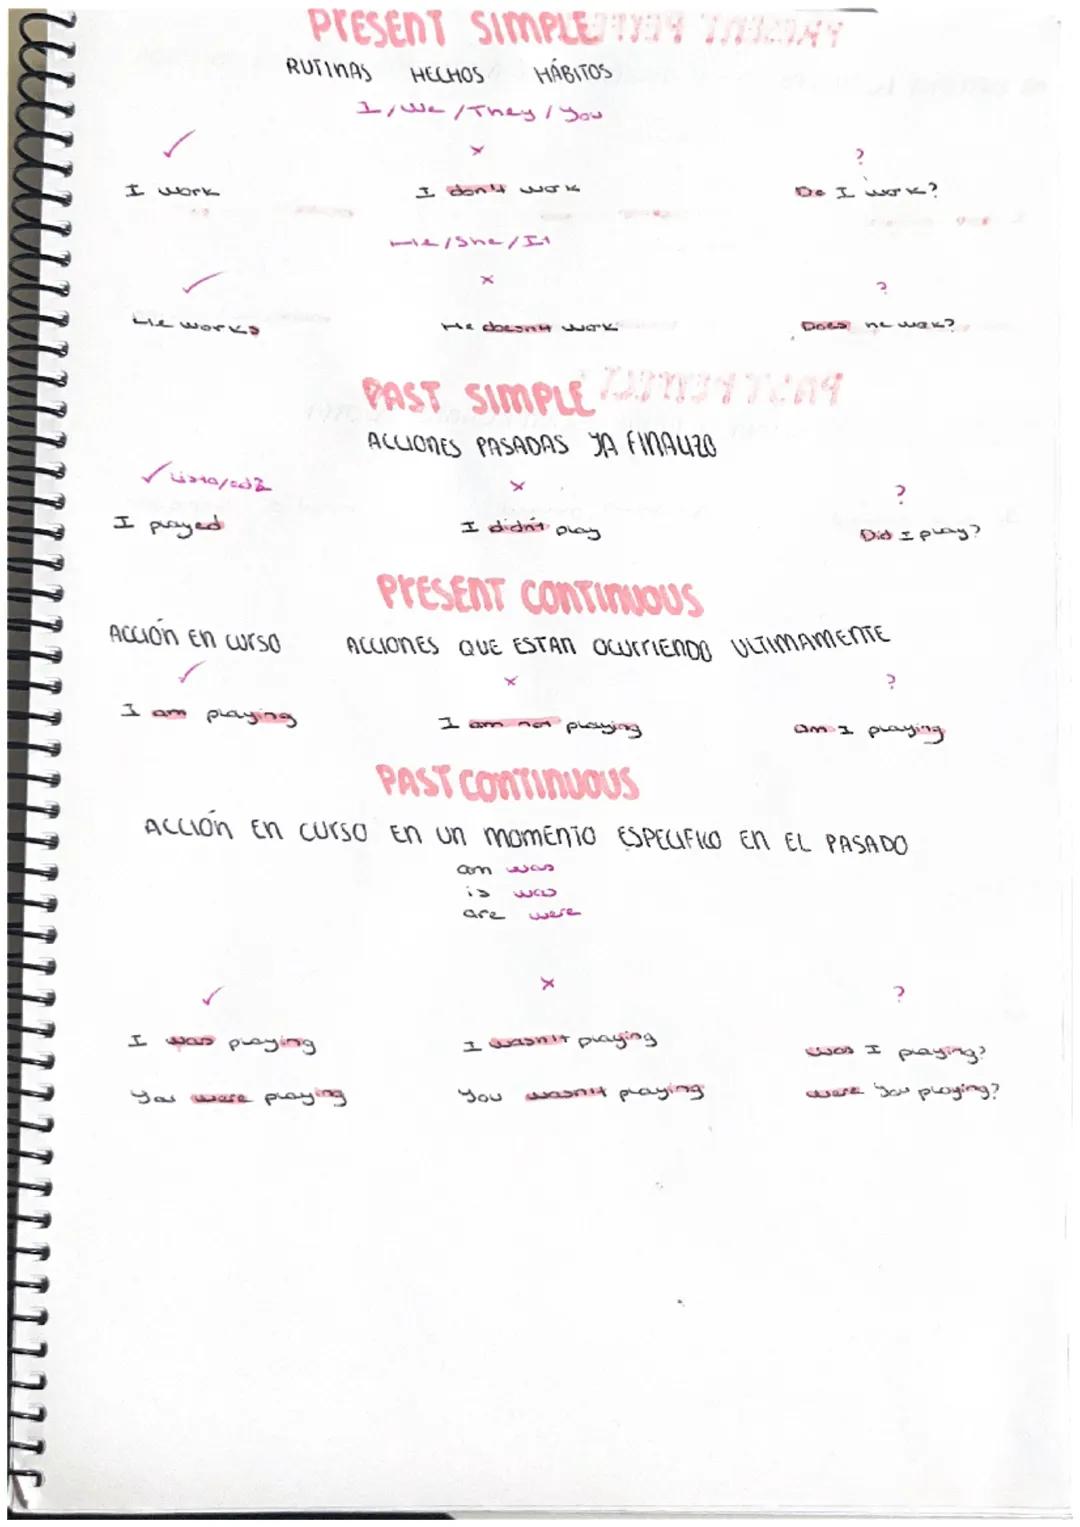 PRESENT SIMPLE
RUTINAS HECHOS HÁBITOS
I/We/They/You
✓ × ?
I work I don't work Do I work?
He/She/It
✓ × ?
He works He doesn't work Does he work?
PAST SIMPLE
ACCIONES PASADAS YA FINALIZO
✓ Lista/ed × ?
I played I didn't play Did I play?
PRESENT CONTINUOUS
ACCIÓN EN CURSO ACCIONES QUE ESTAN OCURRIENDO ULTIMAMENTE
✓ × ?
I am playing I am not playing am I playing
PAST CONTINUOUS
ACCIÓN EN CURSO EN UN MOMENTO ESPECIFICO EN EL PASADO
am was
is was
are were
✓ × ?
I was playing I wasn't playing was I playing?
You were playing You wasn't playing were you playing?